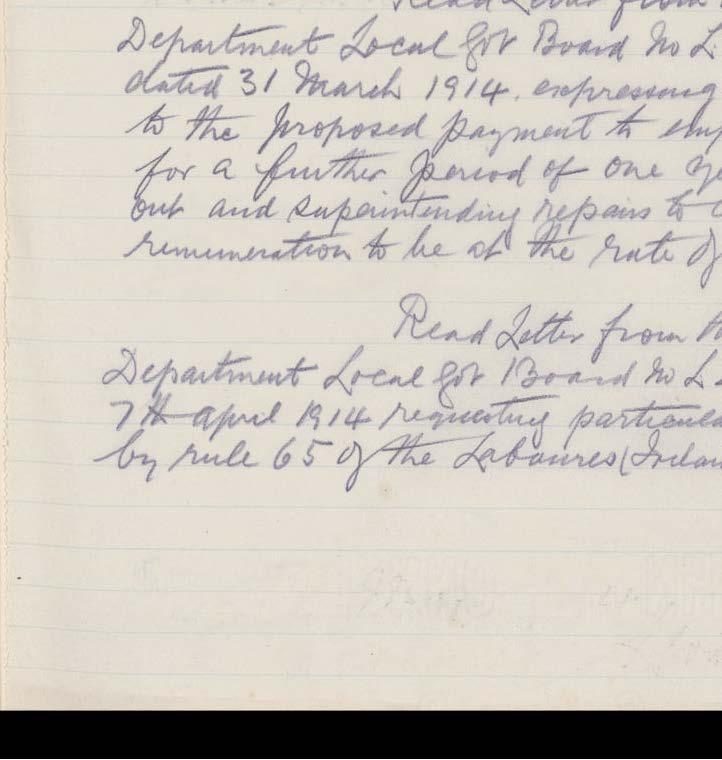 Read Letter from
Department Local Gov Board No L
dated 31 March 1914. expressing
to the proposed payment to emp
for a further period of one ye
out and superintending repairs to
remuneration to be at the rate of
Read Letter from th
Department Local Gov Board No L
7th April 1914 requesting particula
by rule 65 of the Laboures (Irelan